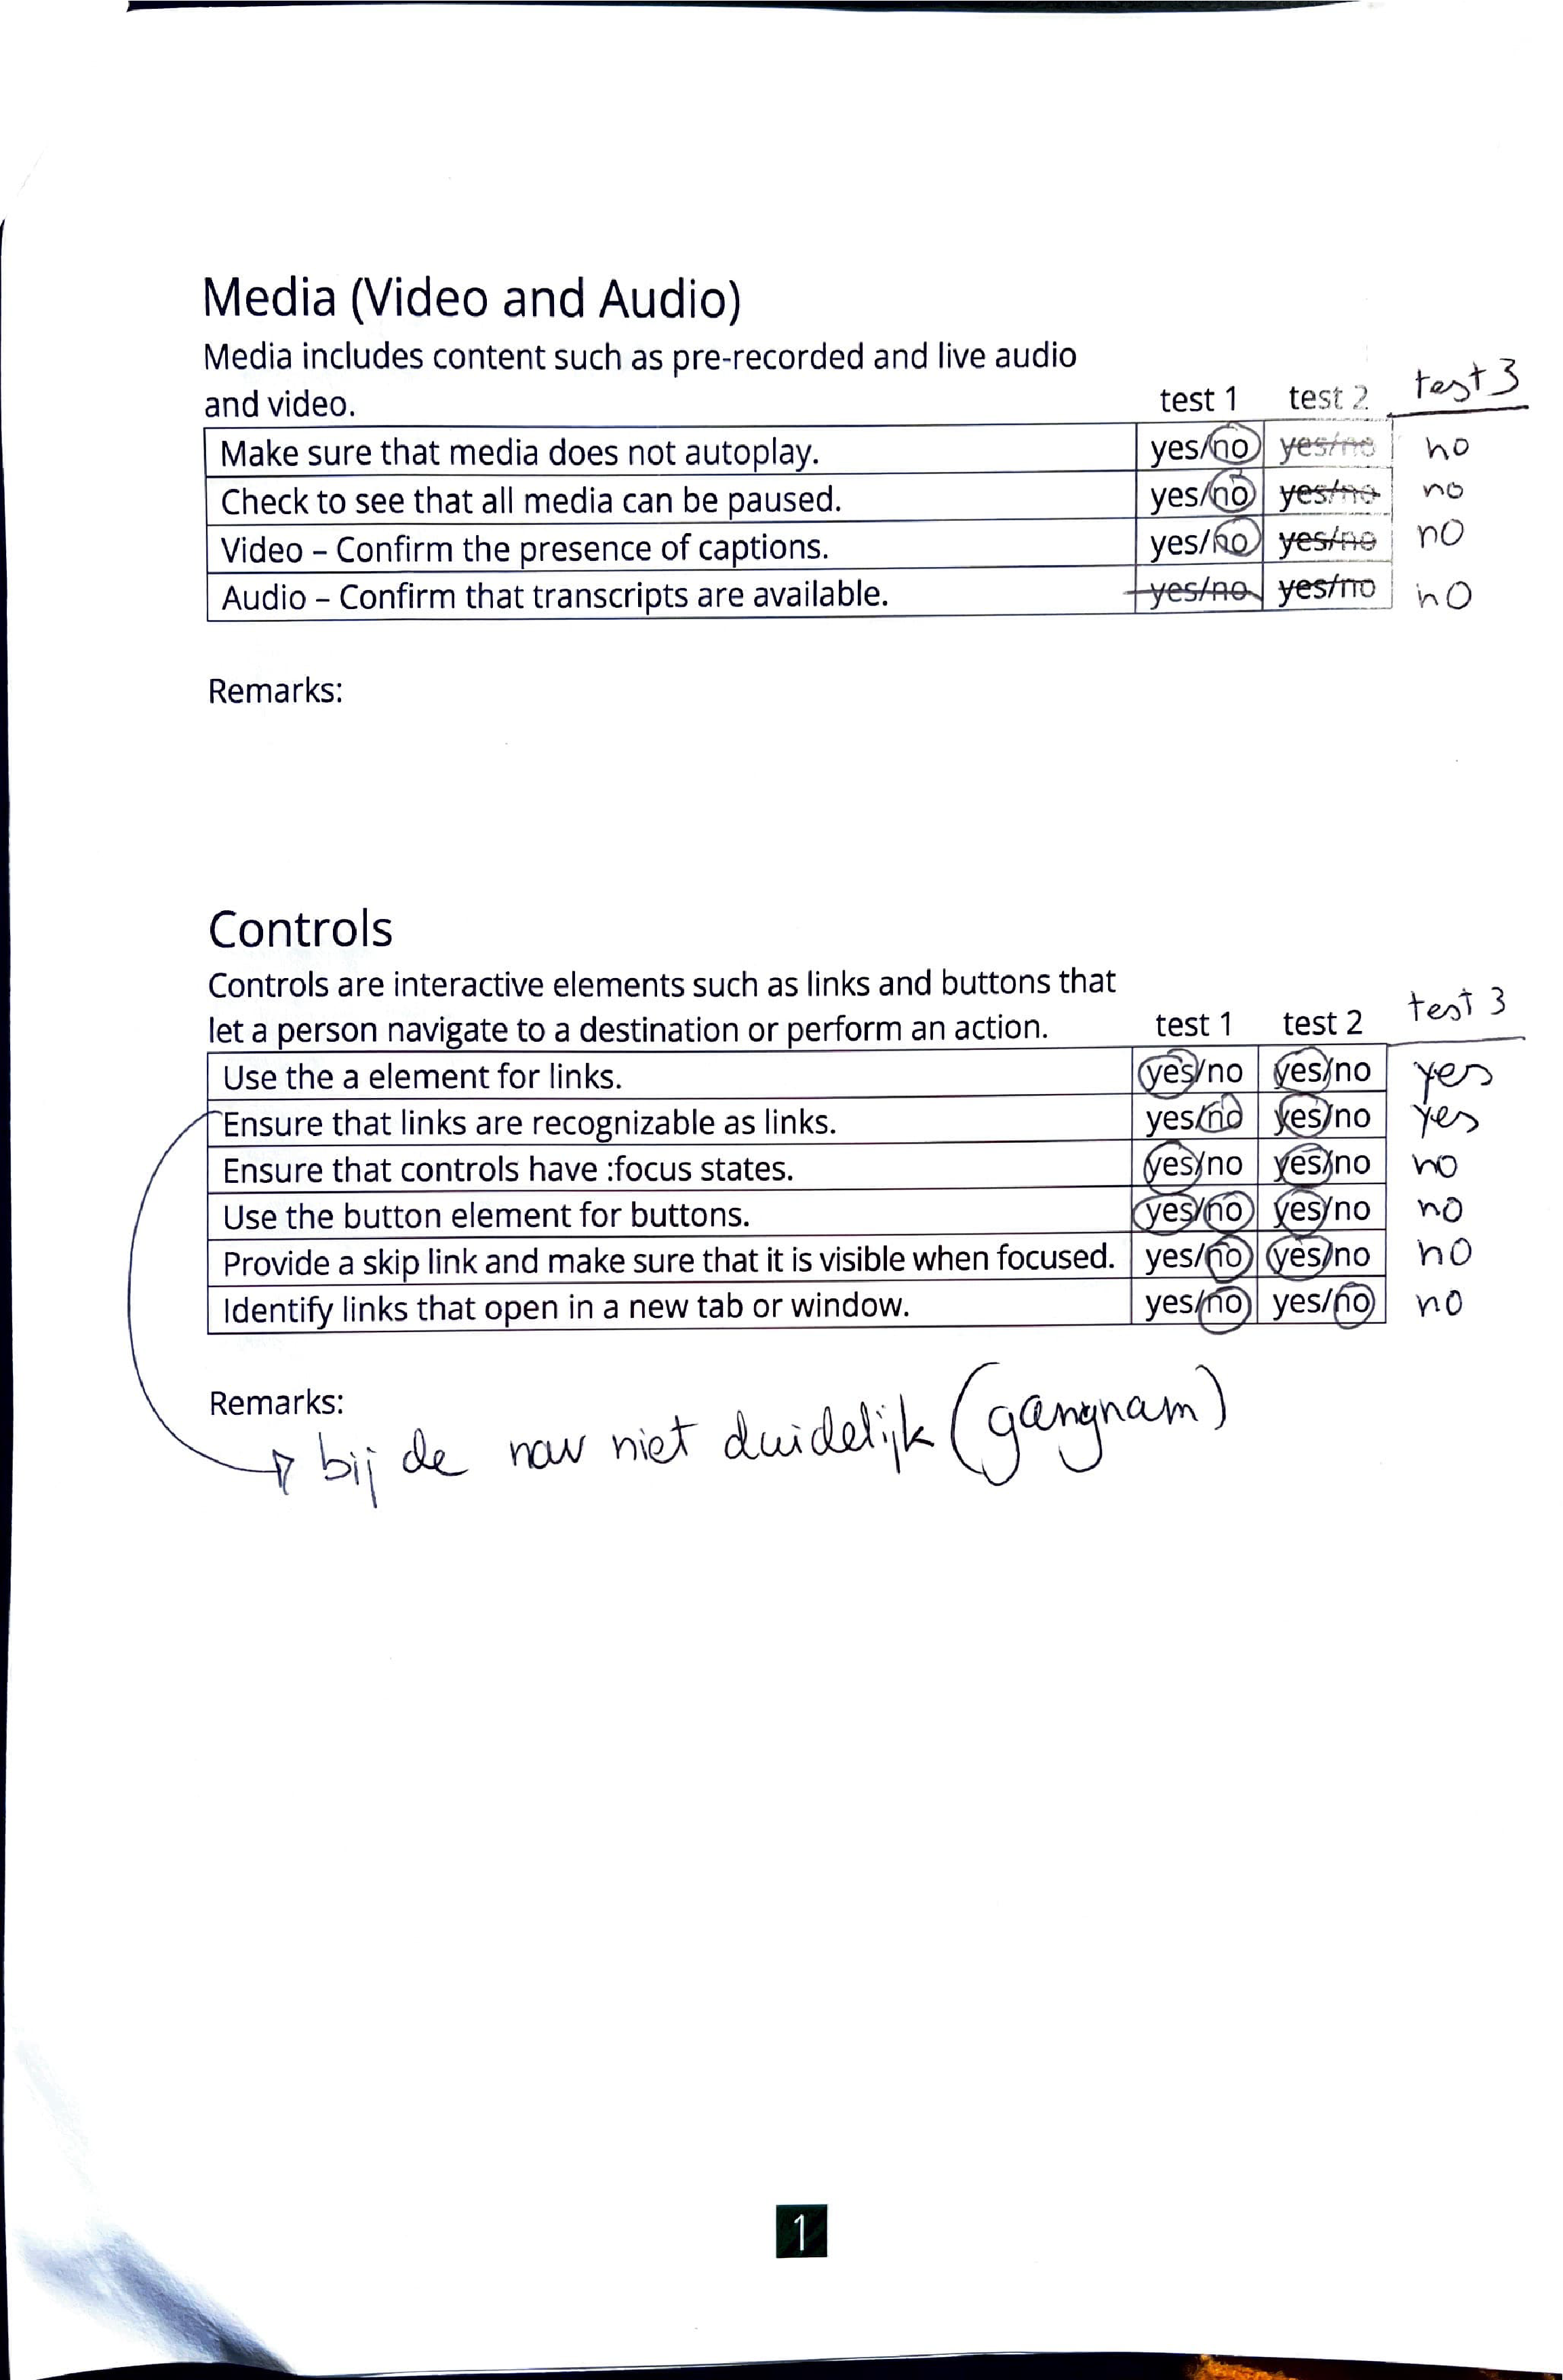 Media (Video and Audio)
Media includes content such as pre-recorded and live audio
and video. test 1 test 2 test 3
Make sure that media does not autoplay. yes/no yes/no no
Check to see that all media can be paused. yes/no yes/no no
Video – Confirm the presence of captions. yes/no yes/no no
Audio – Confirm that transcripts are available. yes/no yes/no no
Remarks:
Controls
Controls are interactive elements such as links and buttons that
let a person navigate to a destination or perform an action. test 1 test 2 test 3
Use the a element for links. yes/no yes/no yes
Ensure that links are recognizable as links. yes/no yes/no yes
Ensure that controls have :focus states. yes/no yes/no no
Use the button element for buttons. yes/no yes/no no
Provide a skip link and make sure that it is visible when focused. yes/no yes/no no
Identify links that open in a new tab or window. yes/no yes/no no
Remarks:
bij de nav niet duidelijk (gangnam)
1